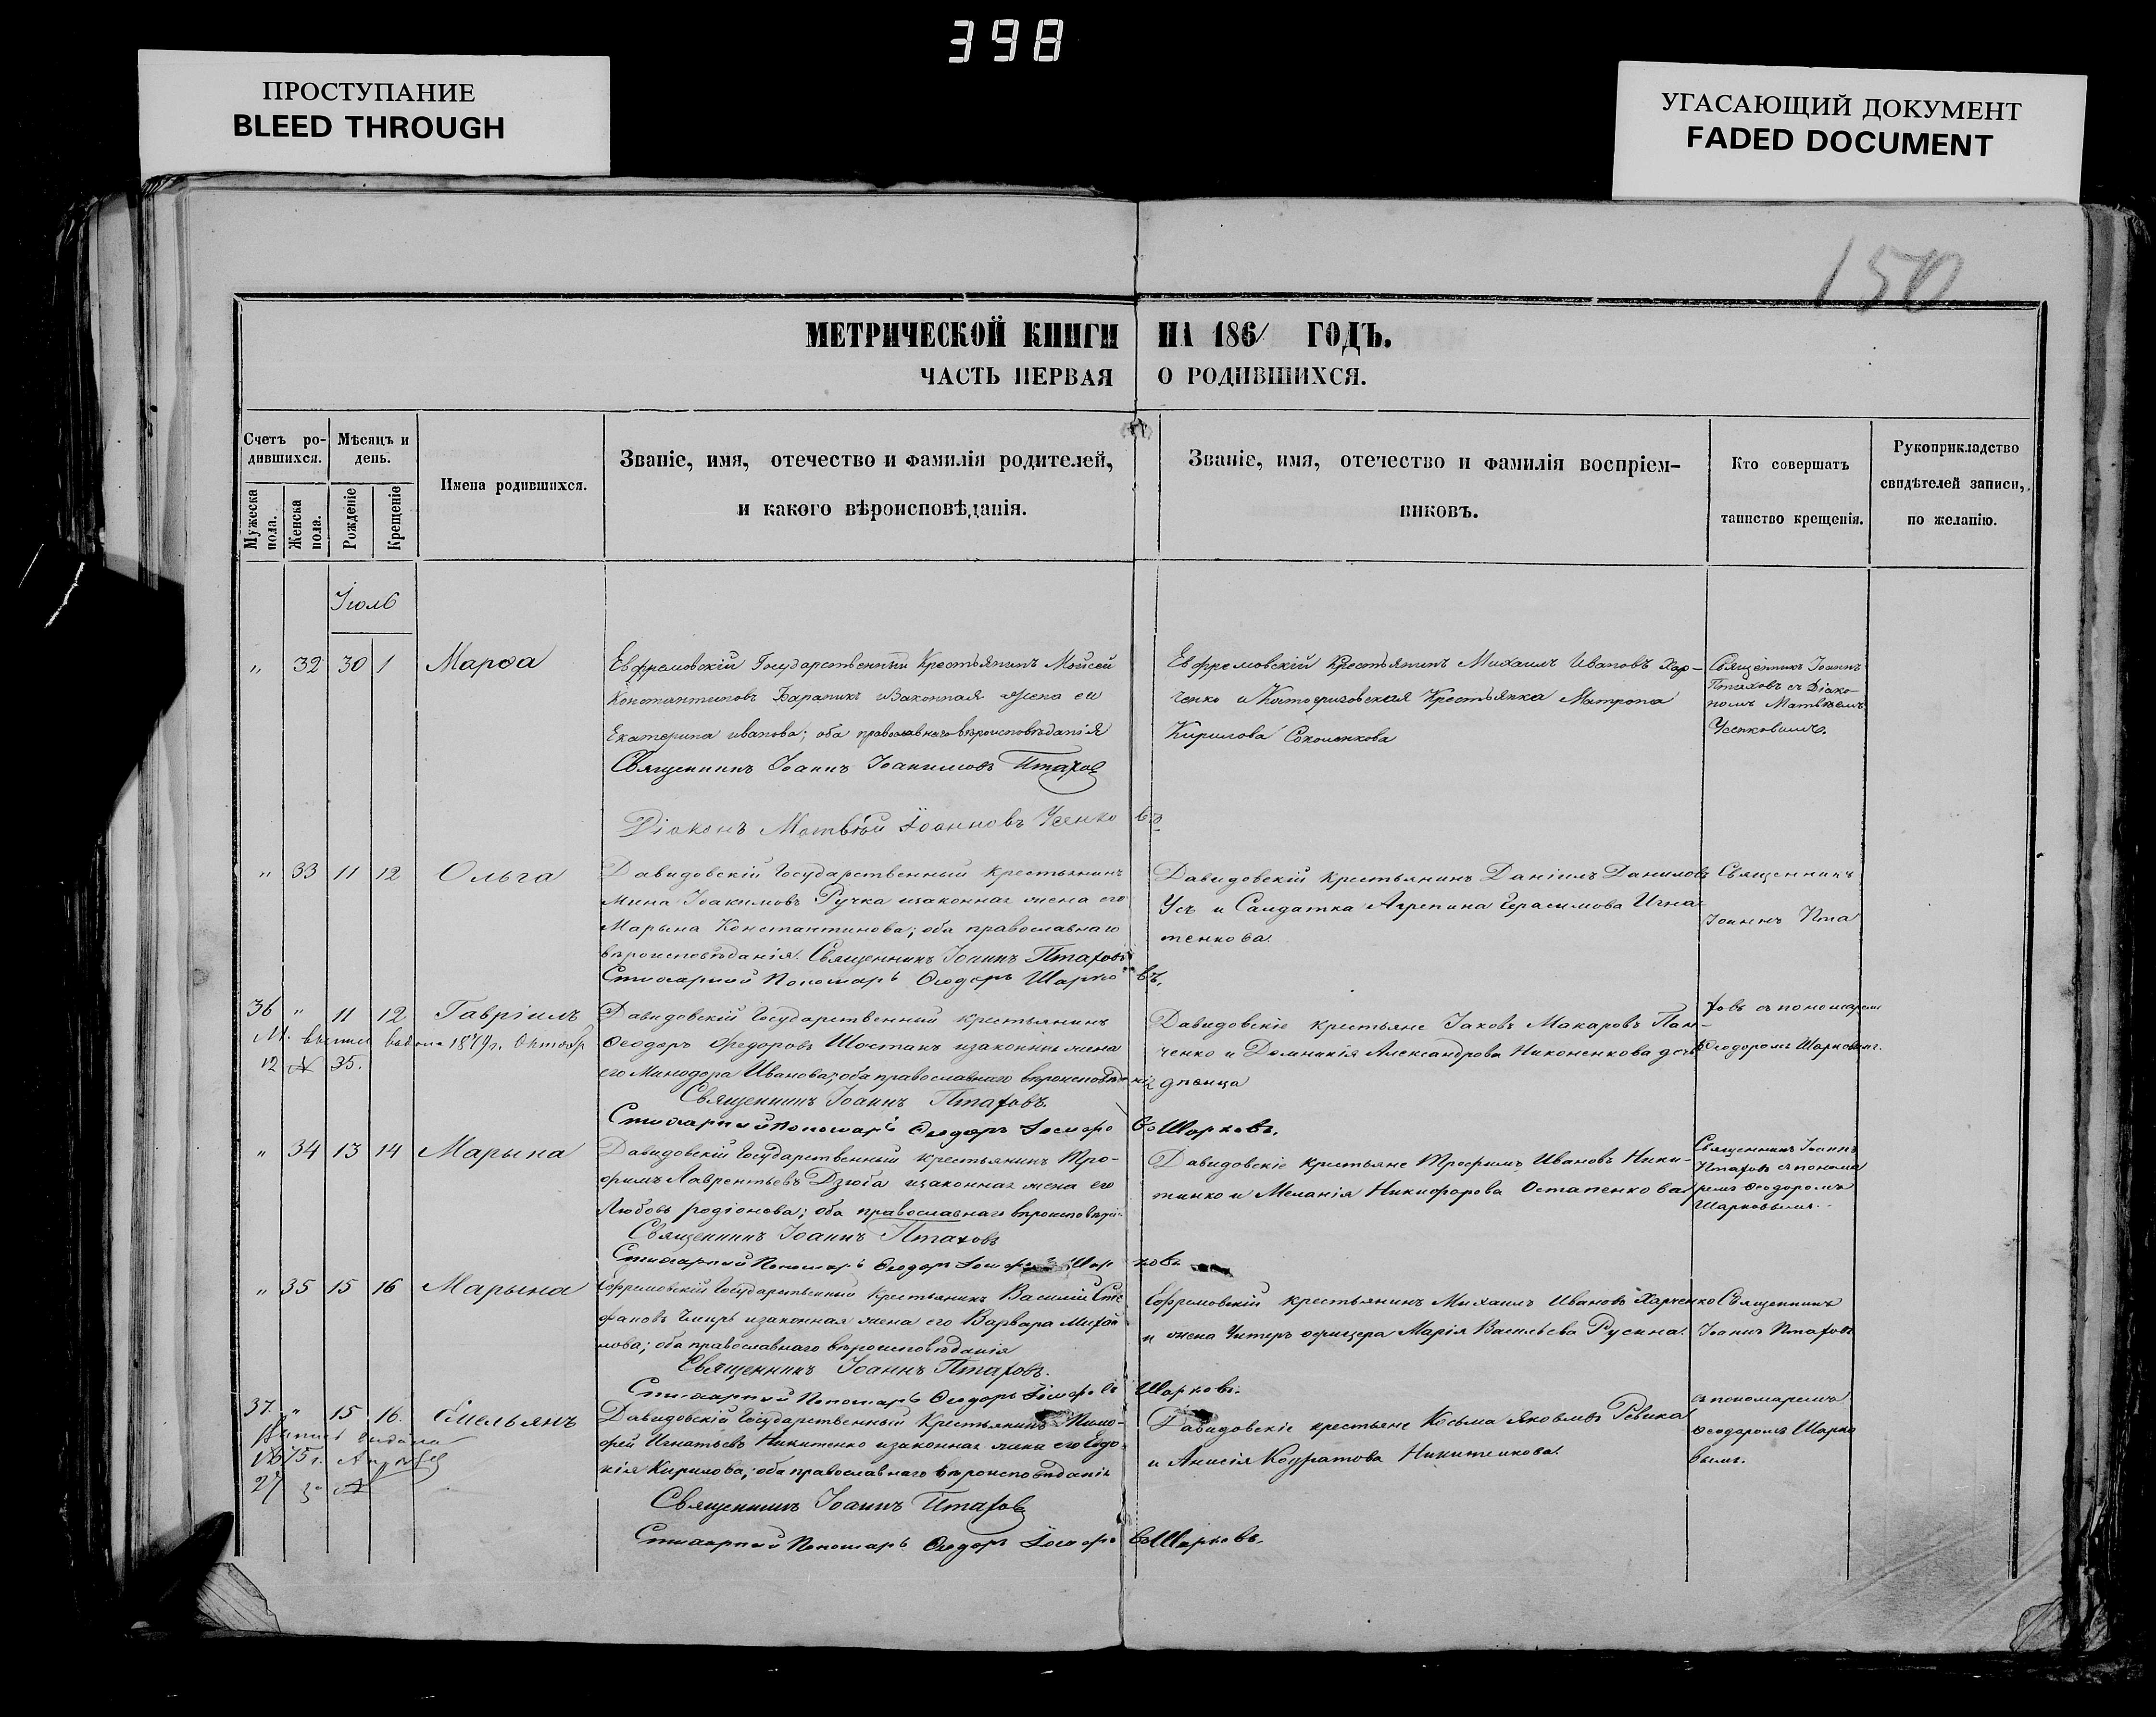 398
ПРОСТУПАНИЕ
BLEED THROUGH
УГАСАЮЩИЙ ДОКУМЕНТ
FADED DOCUMENT
150
МЕТРИЧЕСКОЙ КНИГИ НА 1861 ГОДЪ.
ЧАСТЬ ПЕРВАЯ О РОДИВШИХСЯ.
Счетъ родившихся.
Мужеска пола.
Женска пола.
Мѣсяцъ и день.
Рожденіе
Крещеніе
Имена родившихся.
Званіе, имя, отечество и фамилія родителей,
и какого вѣроисповѣданія.
Званіе, имя, отечество и фамилія воспріем-
никовъ.
Кто совершатъ
таинство крещенія.
Рукоприкладство
свидѣтелей записи,
по желанію.
Іюль
" 32 30 1 Марѳа
Евфремовскій Государственный Крестьянинъ Мойсей
Константиновъ Бараникъ и Законная Жена его
Екатерина иванова; оба православнаго вѣроисповѣданія
Священникъ Іоаннъ Іоакимовъ Птаховъ
Діаконъ Матвѣй Іоанновъ Усенковъ
Евфремовскій Крестьянинъ Михаилъ Ивановъ Хар-
ченко и Крестьянка Матрона
Кирилова Соколенкова
Священникъ Іоаннъ
Птаховъ съ Діако-
номъ Матвѣемъ
Усенковымъ.
" 33 11 12 Ольга
Давидовскій Государственный крестьянинъ
Мина Іоакимовъ Ручка и законная жена его
Марына Константинова; оба православнаго
вѣроисповѣданія. Священникъ Іоаннъ Птаховъ
Стихарный Пономарь Ѳеодоръ Шарковъ.
Давидовскій крестьянинъ Даніилъ Даниловъ
Усъ и Салдатка Агрепина Герасимова Игна-
тенкова.
Священникъ
Іоаннъ Пта
36 " 11 12 Гавріилъ
М. выпись выдана 1879 г. Октябр
12 № 35.
Давидовскій Государственный крестьянинъ
Ѳеодоръ Федоровъ Шостакъ и законная жена
его Минодора Иванова; оба православнаго вѣроисповѣданія
Священникъ Іоаннъ Птаховъ.
Стихарный Пономарь Ѳеодоръ Іосифовъ Шарковъ.
Давидовскіе крестьяне Іаковъ Макаровъ Пан-
ченко и Домникія Александрова Никоненкова
дѣвица
ховъ съ пономаремъ
Ѳеодоромъ Шарковымъ.
" 34 13 14 Марына
Давидовскій Государственный крестьянинъ Тро-
фимъ Лаврентьевъ Дзюба и законная жена его
Любовь родіонова; оба православнаго вѣроисповѣданія
Священникъ Іоаннъ Птаховъ
Стихарный Пономарь Ѳеодоръ Іосифовъ Шарковъ
Давидовскіе крестьяне Трофимъ Ивановъ Ники-
тинко и Меланія Никифорова Остапенкова
Священникъ Іоаннъ
Птаховъ съ понома
ремъ Ѳеодоромъ
Шарковымъ.
" 35 15 16 Марына
Ефремовскій Государственный крестьянинъ Василій Сте
фановъ и законная жена его Варвара Михай
лова; оба православнаго вѣроисповѣданія
Священникъ Іоаннъ Птаховъ.
Стихарный Пономарь Ѳеодоръ Іосифовъ Шарковъ.
Ефремовскій крестьянинъ Михаилъ Ивановъ Харченко
и жена Унтеръ офицера Марія Васильева Русина.
Священникъ
Іоаннъ Птаховъ
37. " 15 16. Емельянъ
Выпись выдана
1875 г. Апрѣля
27
Давидовскій Государственный Крестьянинъ Тимо-
фей Игнатьевъ Никитенко и законная жена его Евдо-
кія Кирилова; оба православнаго вѣроисповѣданія
Священникъ Іоаннъ Птаховъ
Стихарный Пономарь Ѳеодоръ Іосифовъ Шарковъ.
Давидовскіе крестьяне Косьма Яковлевъ Ревика
и Анисія Кодратова Никитенкова.
съ пономаремъ
Ѳеодоромъ Шарко
вымъ.